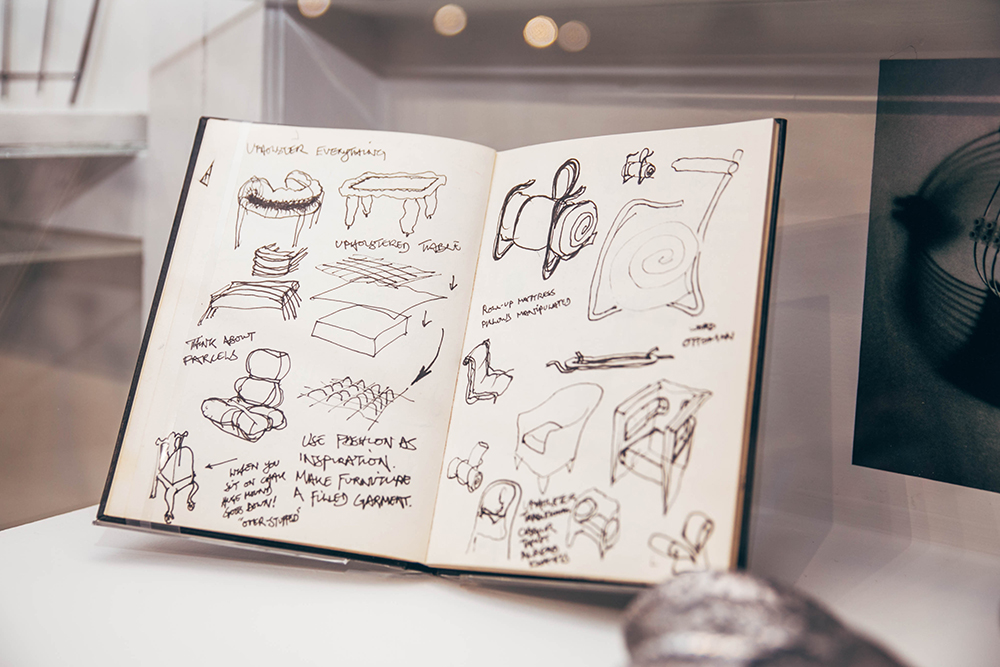 UPHOLSTER EVERYTHING
UPHOLSTERED TABLE
THINK ABOUT
PARCELS
WHEN YOU
SIT ON CHAIR
HUGE MOUND
GOES DOWN!
"OVER-STUFFED"
USE FASHION AS
INSPIRATION.
MAKE FURNITURE
A FILLED GARMENT.
ROLL-UP MATTRESS
PILLOWS MANIPULATED
OTTOMAN
TRADITIONAL
CHAIR